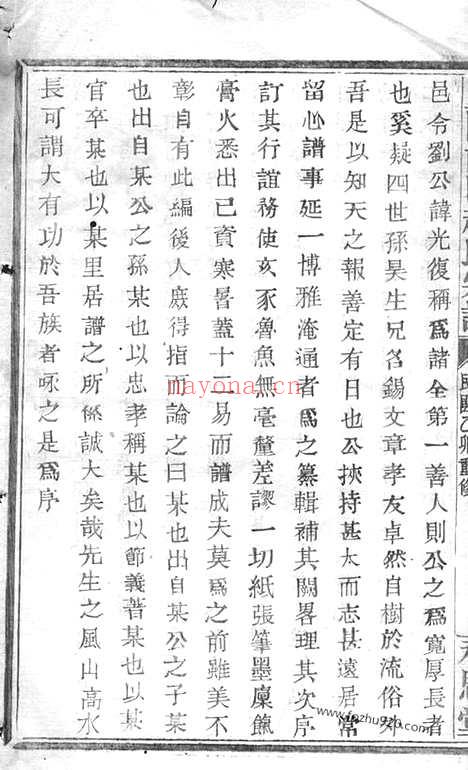 邑令劉公諱光復稱爲諸全第一善人則公之爲寬厚長者
也奚疑四世孫昊生兄名錫文章孝友卓然自樹於流俗外
吾是以知天之報善定有日也公挾持甚大而志甚遠居常
留心譜事延一博雅淹通者爲之纂輯補其闕畧理其次序
訂其行誼務使亥豕魯魚無毫釐差謬一切紙張筆墨廩餼
膏火悉出已資寒暑葢十二易而譜成夫莫爲之前雖美不
彰自有此編後人庶得指而論之曰某也出自某公之子某
也出自某公之孫某也以忠孝稱某也以節義著某也以某
官卒某也以某里居譜之所係誠大矣哉先生之風山高水
長可謂大有功於吾族者咏之是爲序
民國乙卯重修
mayona.cn
www.fozhu920.com